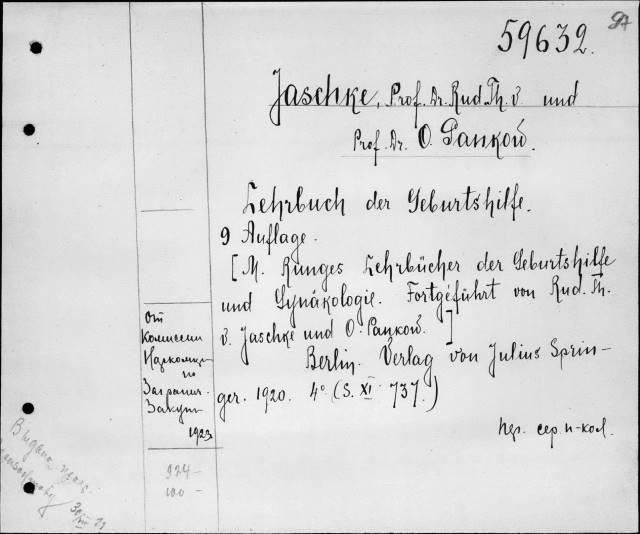 59632.
Jaschke, Prof. Dr. Rud. Th. v. und
Prof. Dr. O. Pankow.
Lehrbuch der Geburtshilfe.
9 Auflage.
[M. Runges Lehrbücher der Geburtshilfe
und Gynäkologie. Fortgeführt von Rud. Th.
v. Jaschke und O. Pankow.]
Berlin. Verlag von Julius Sprin-
ger. 1920. 4° (S. XI 737.)
От
Комиссии
по
Загранич.
Закуп
1923
924 -
100 -